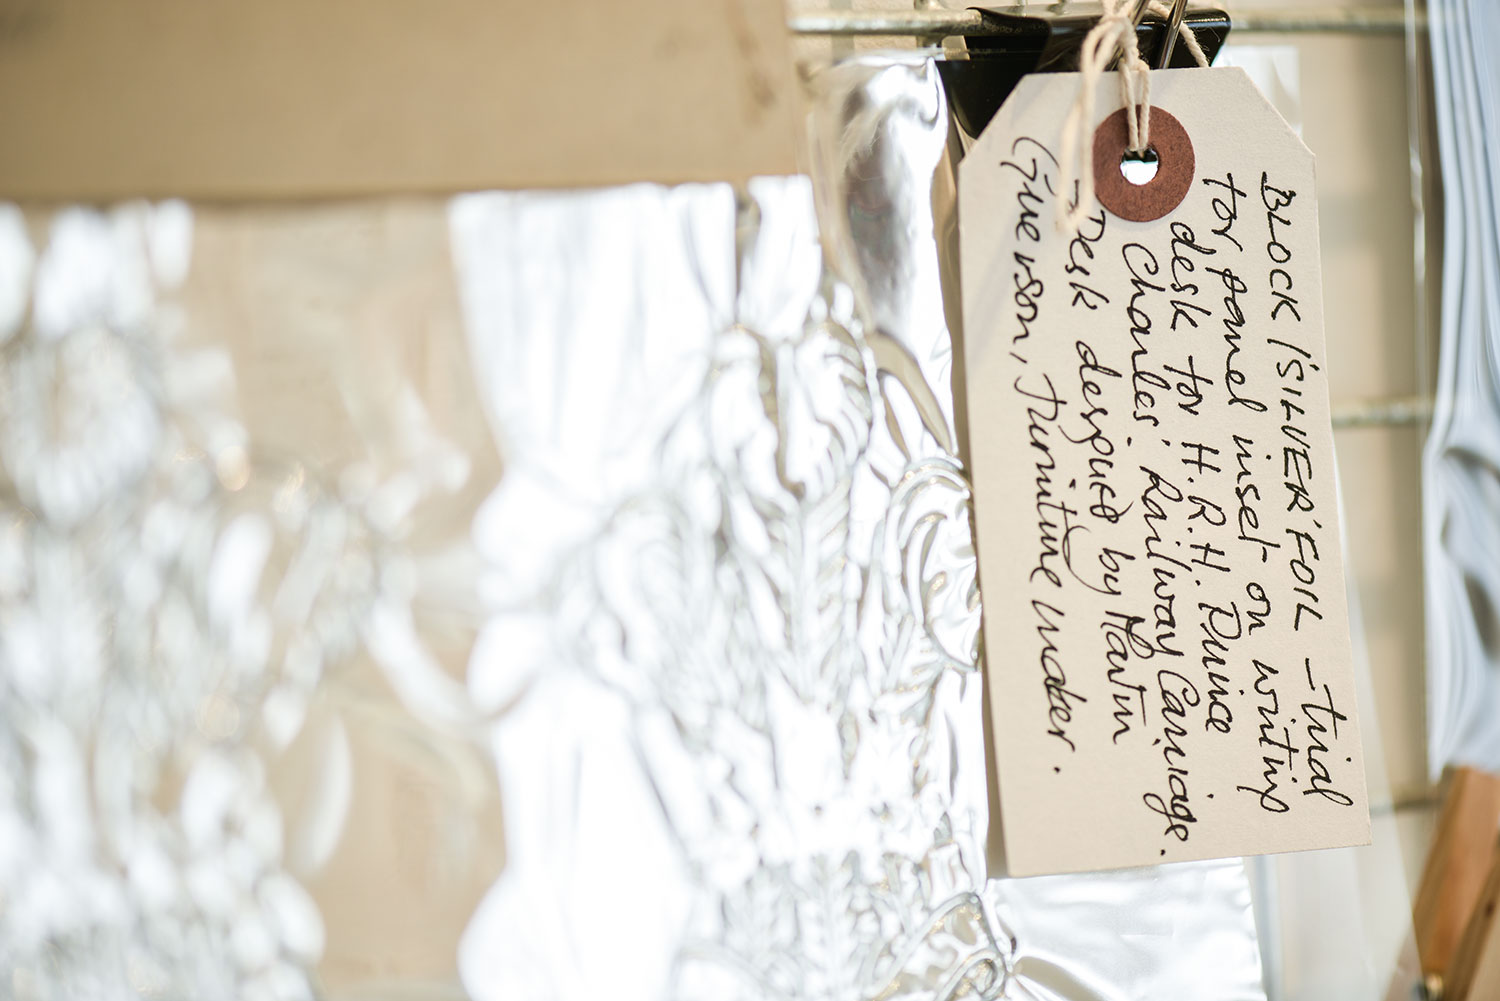 BLOCK 1 'SILVER' FOIL - trial
for panel inset on writing
desk for H.R.H. Prince
Charles' Railway Carriage.
- Desk designed by Martin
Grierson, Furniture maker.